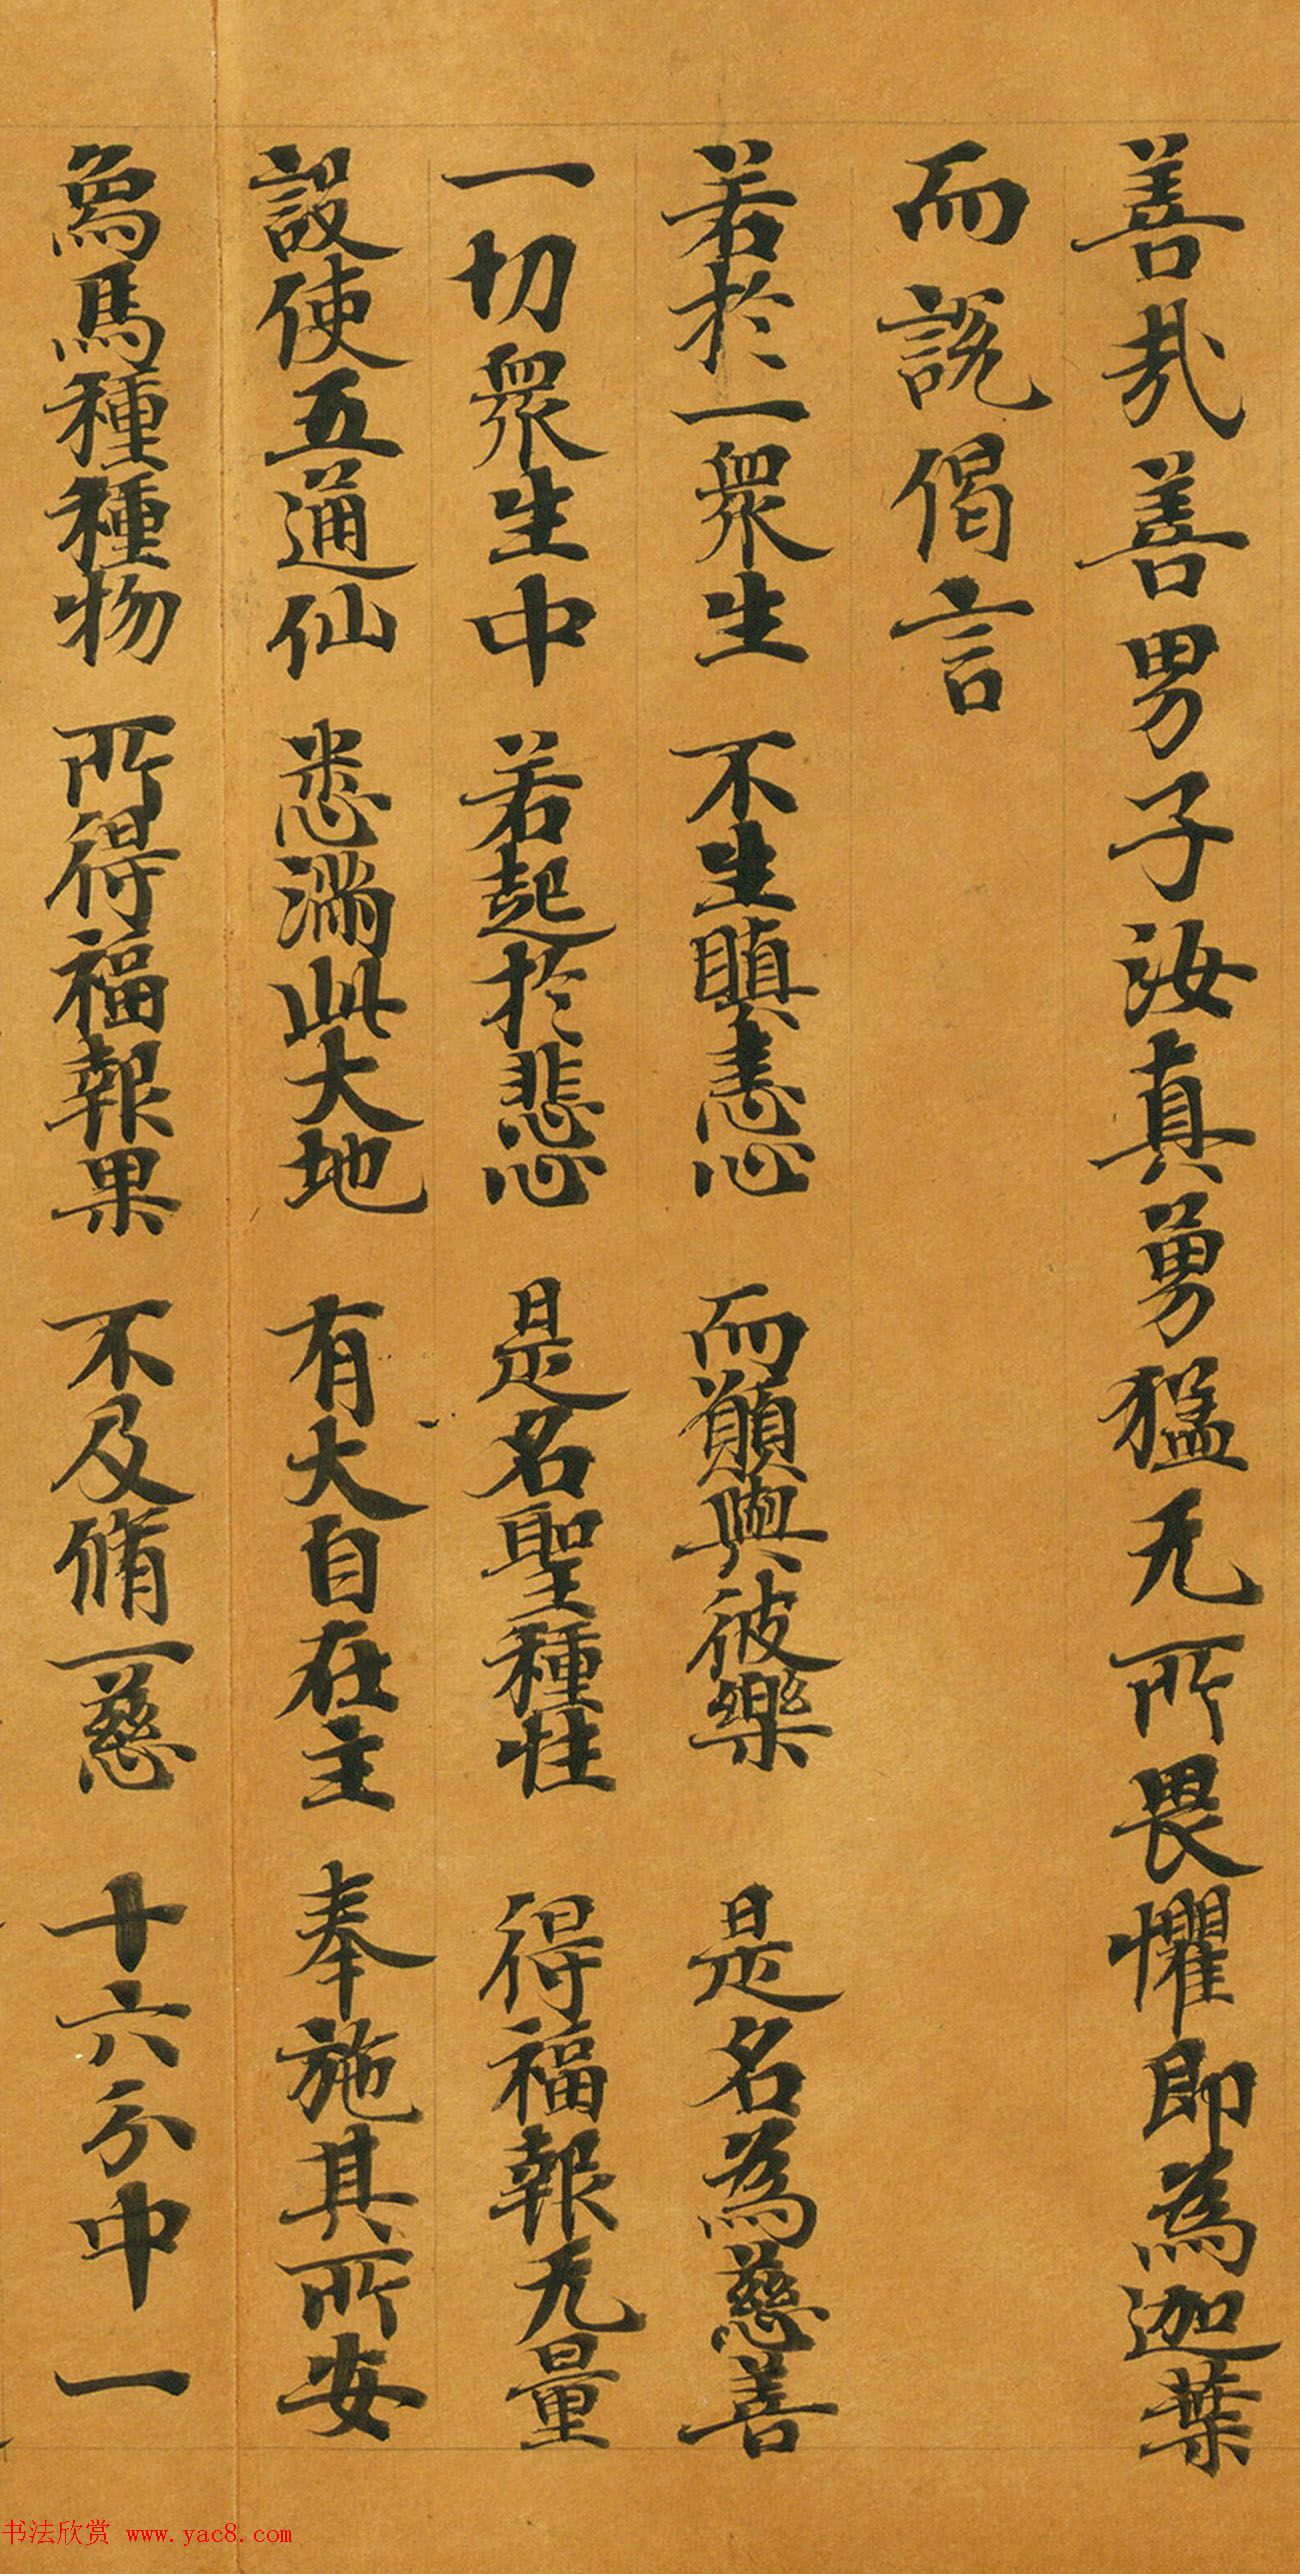 善哉善男子汝真勇猛无所畏懼即為迦葉
而說偈言
若於一眾生 不生瞋恚心 而願與彼樂 是名為慈善
一切眾生中 若起於悲心 是名聖種性 得福報无量
設使五通仙 悉滿此大地 有大自在主 奉施其所安
象馬種種物 所得福報果 不及脩一慈 十六分中一
书法欣赏 www.yac8.com